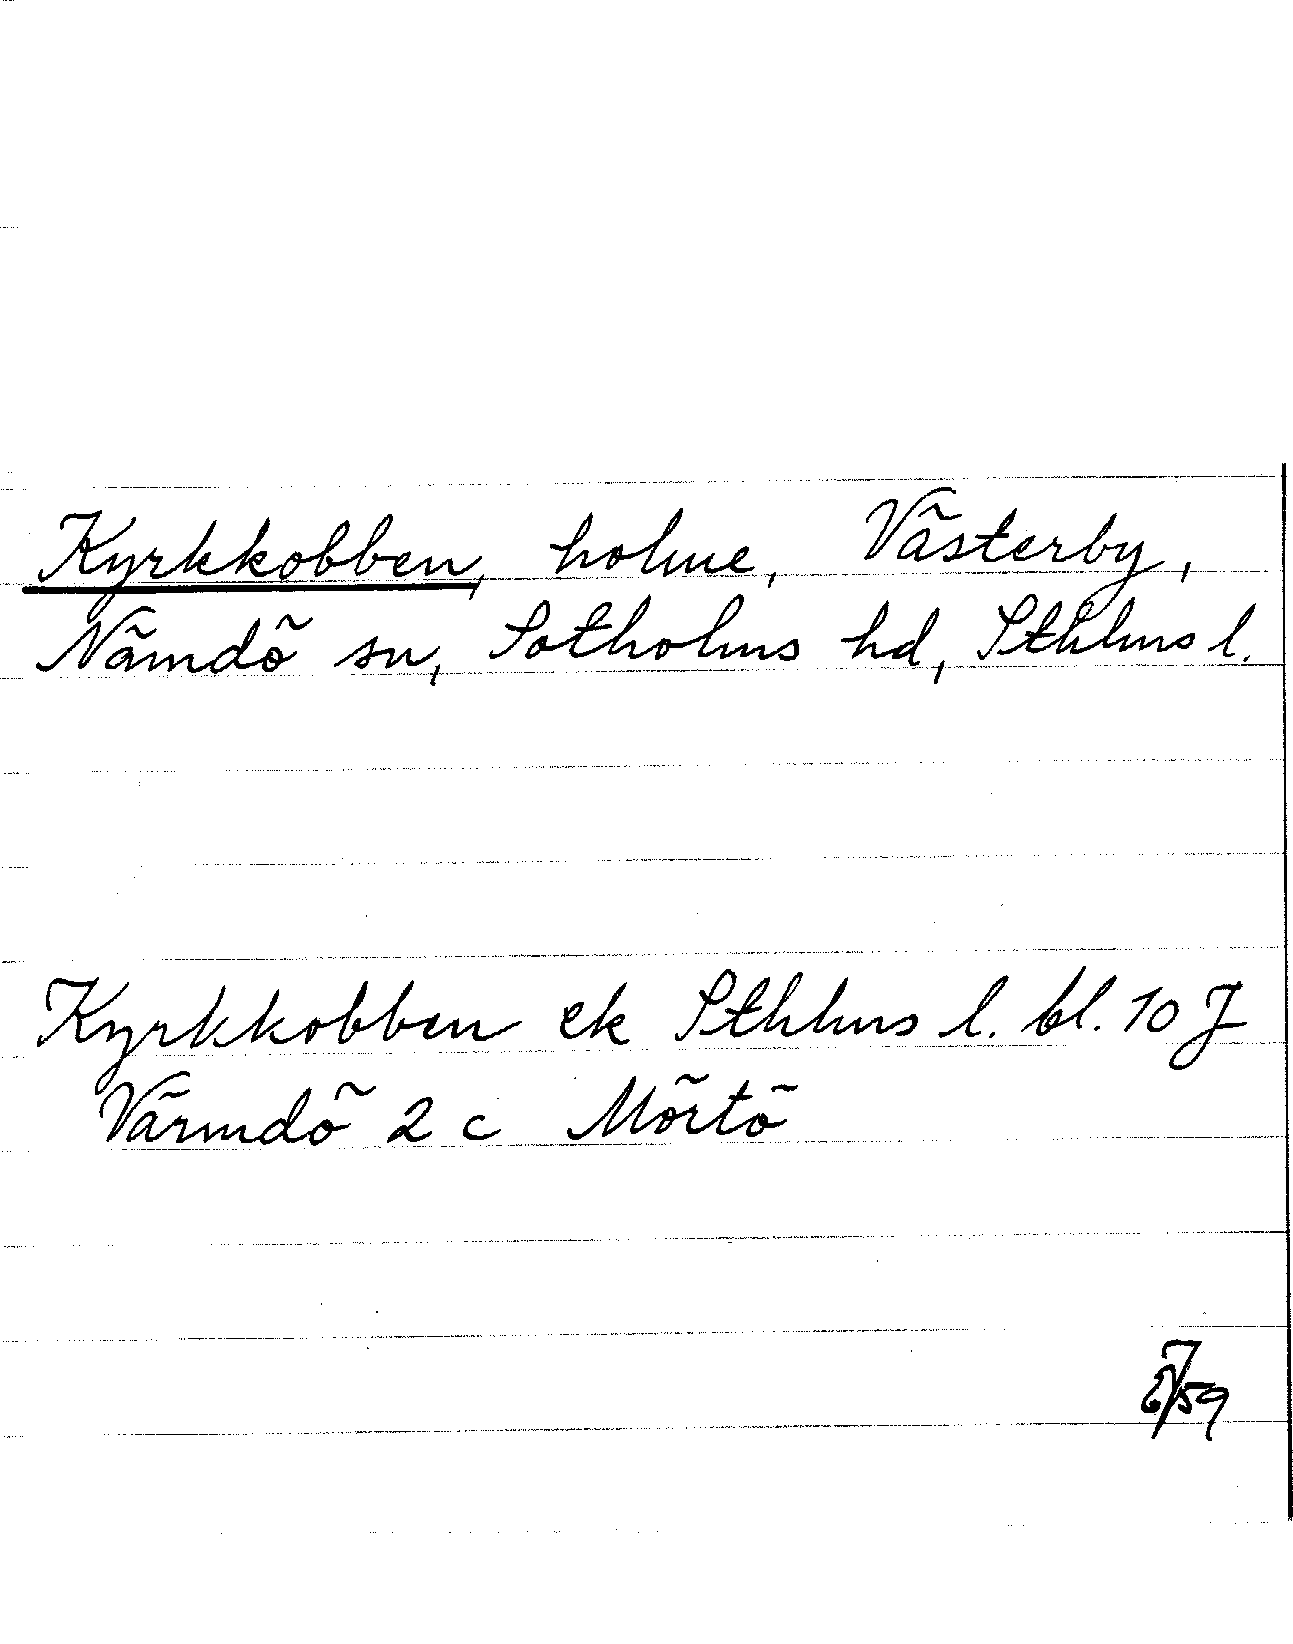 Kyrkkobben, holme, Västerby,
Nämdö sn, Sotholms hd, Sthlms l.
Kyrkkobben ek Sthlms l. bl. 10 J
Värmdö 2 c Mörtö